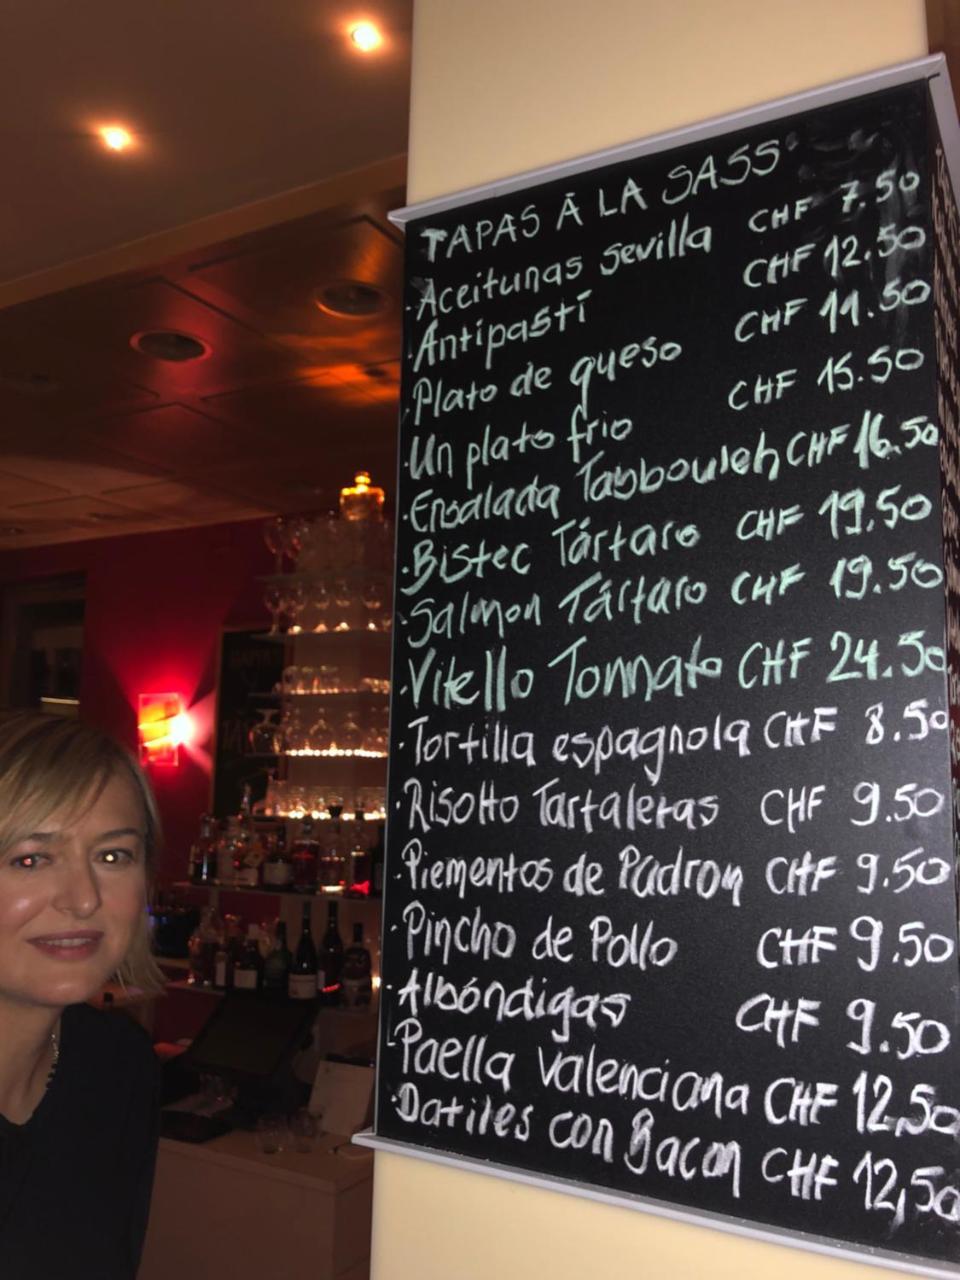 TAPAS À LA SASS
· Aceitunas sevilla CHF 7.50
· Antipasti CHF 12.50
· Plato de queso CHF 11.50
· Un plato frio CHF 15.50
· Ensalada Tabbouleh CHF 16.50
· Bistec Tártaro CHF 19.50
· Salmon Tártaro CHF 19.50
· Vitello Tonnato CHF 24.50
· Tortilla espagnola CHF 8.50
· Risotto Tartaletas CHF 9.50
· Piementos de Padron CHF 9.50
· Pincho de Pollo CHF 9.50
· Albóndigas CHF 9.50
· Paella valenciana CHF 12,50
· Datiles con Bacon CHF 12,50